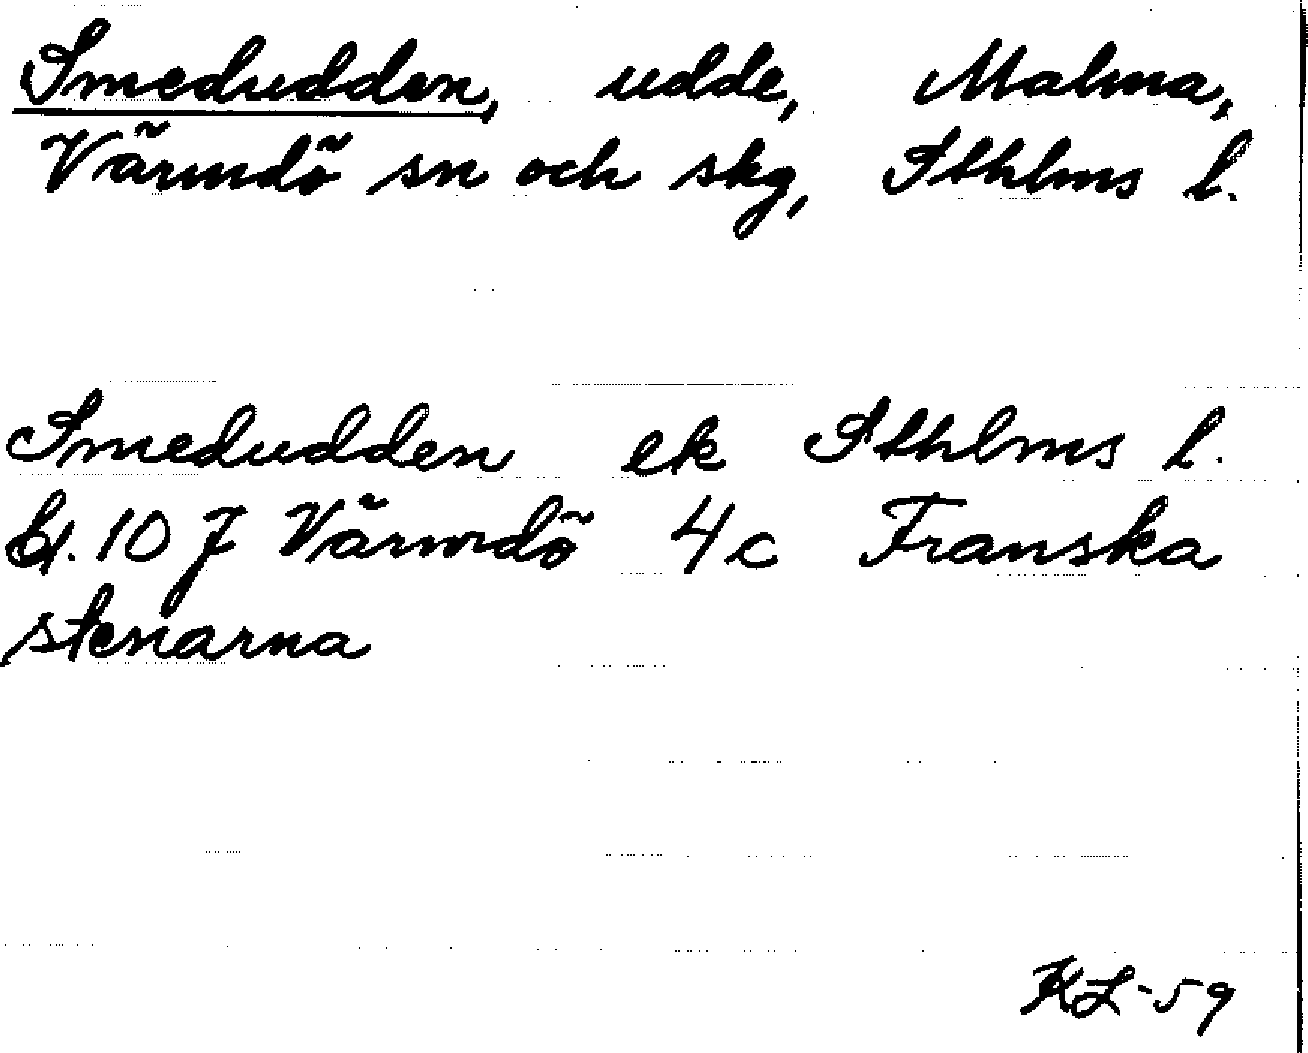 Smedudden, udde, Malma,
Värmdö sn och skg, Sthlms l.
Smedudden ek Sthlms l.
bl. 10 J Värmdö 4c Franska
stenarna
KL-59